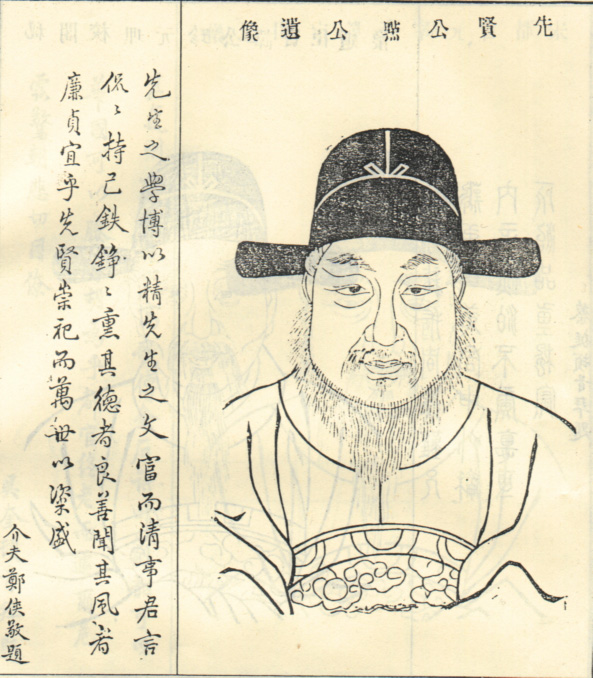 先賢公公遺像
先生之學博以精先生之文富而清事君言
侃〻持己鉄錚〻熏其德者良善聞其風者
廉貞宜乎先賢崇祀而萬世以粢盛
介夫鄭俠敬題